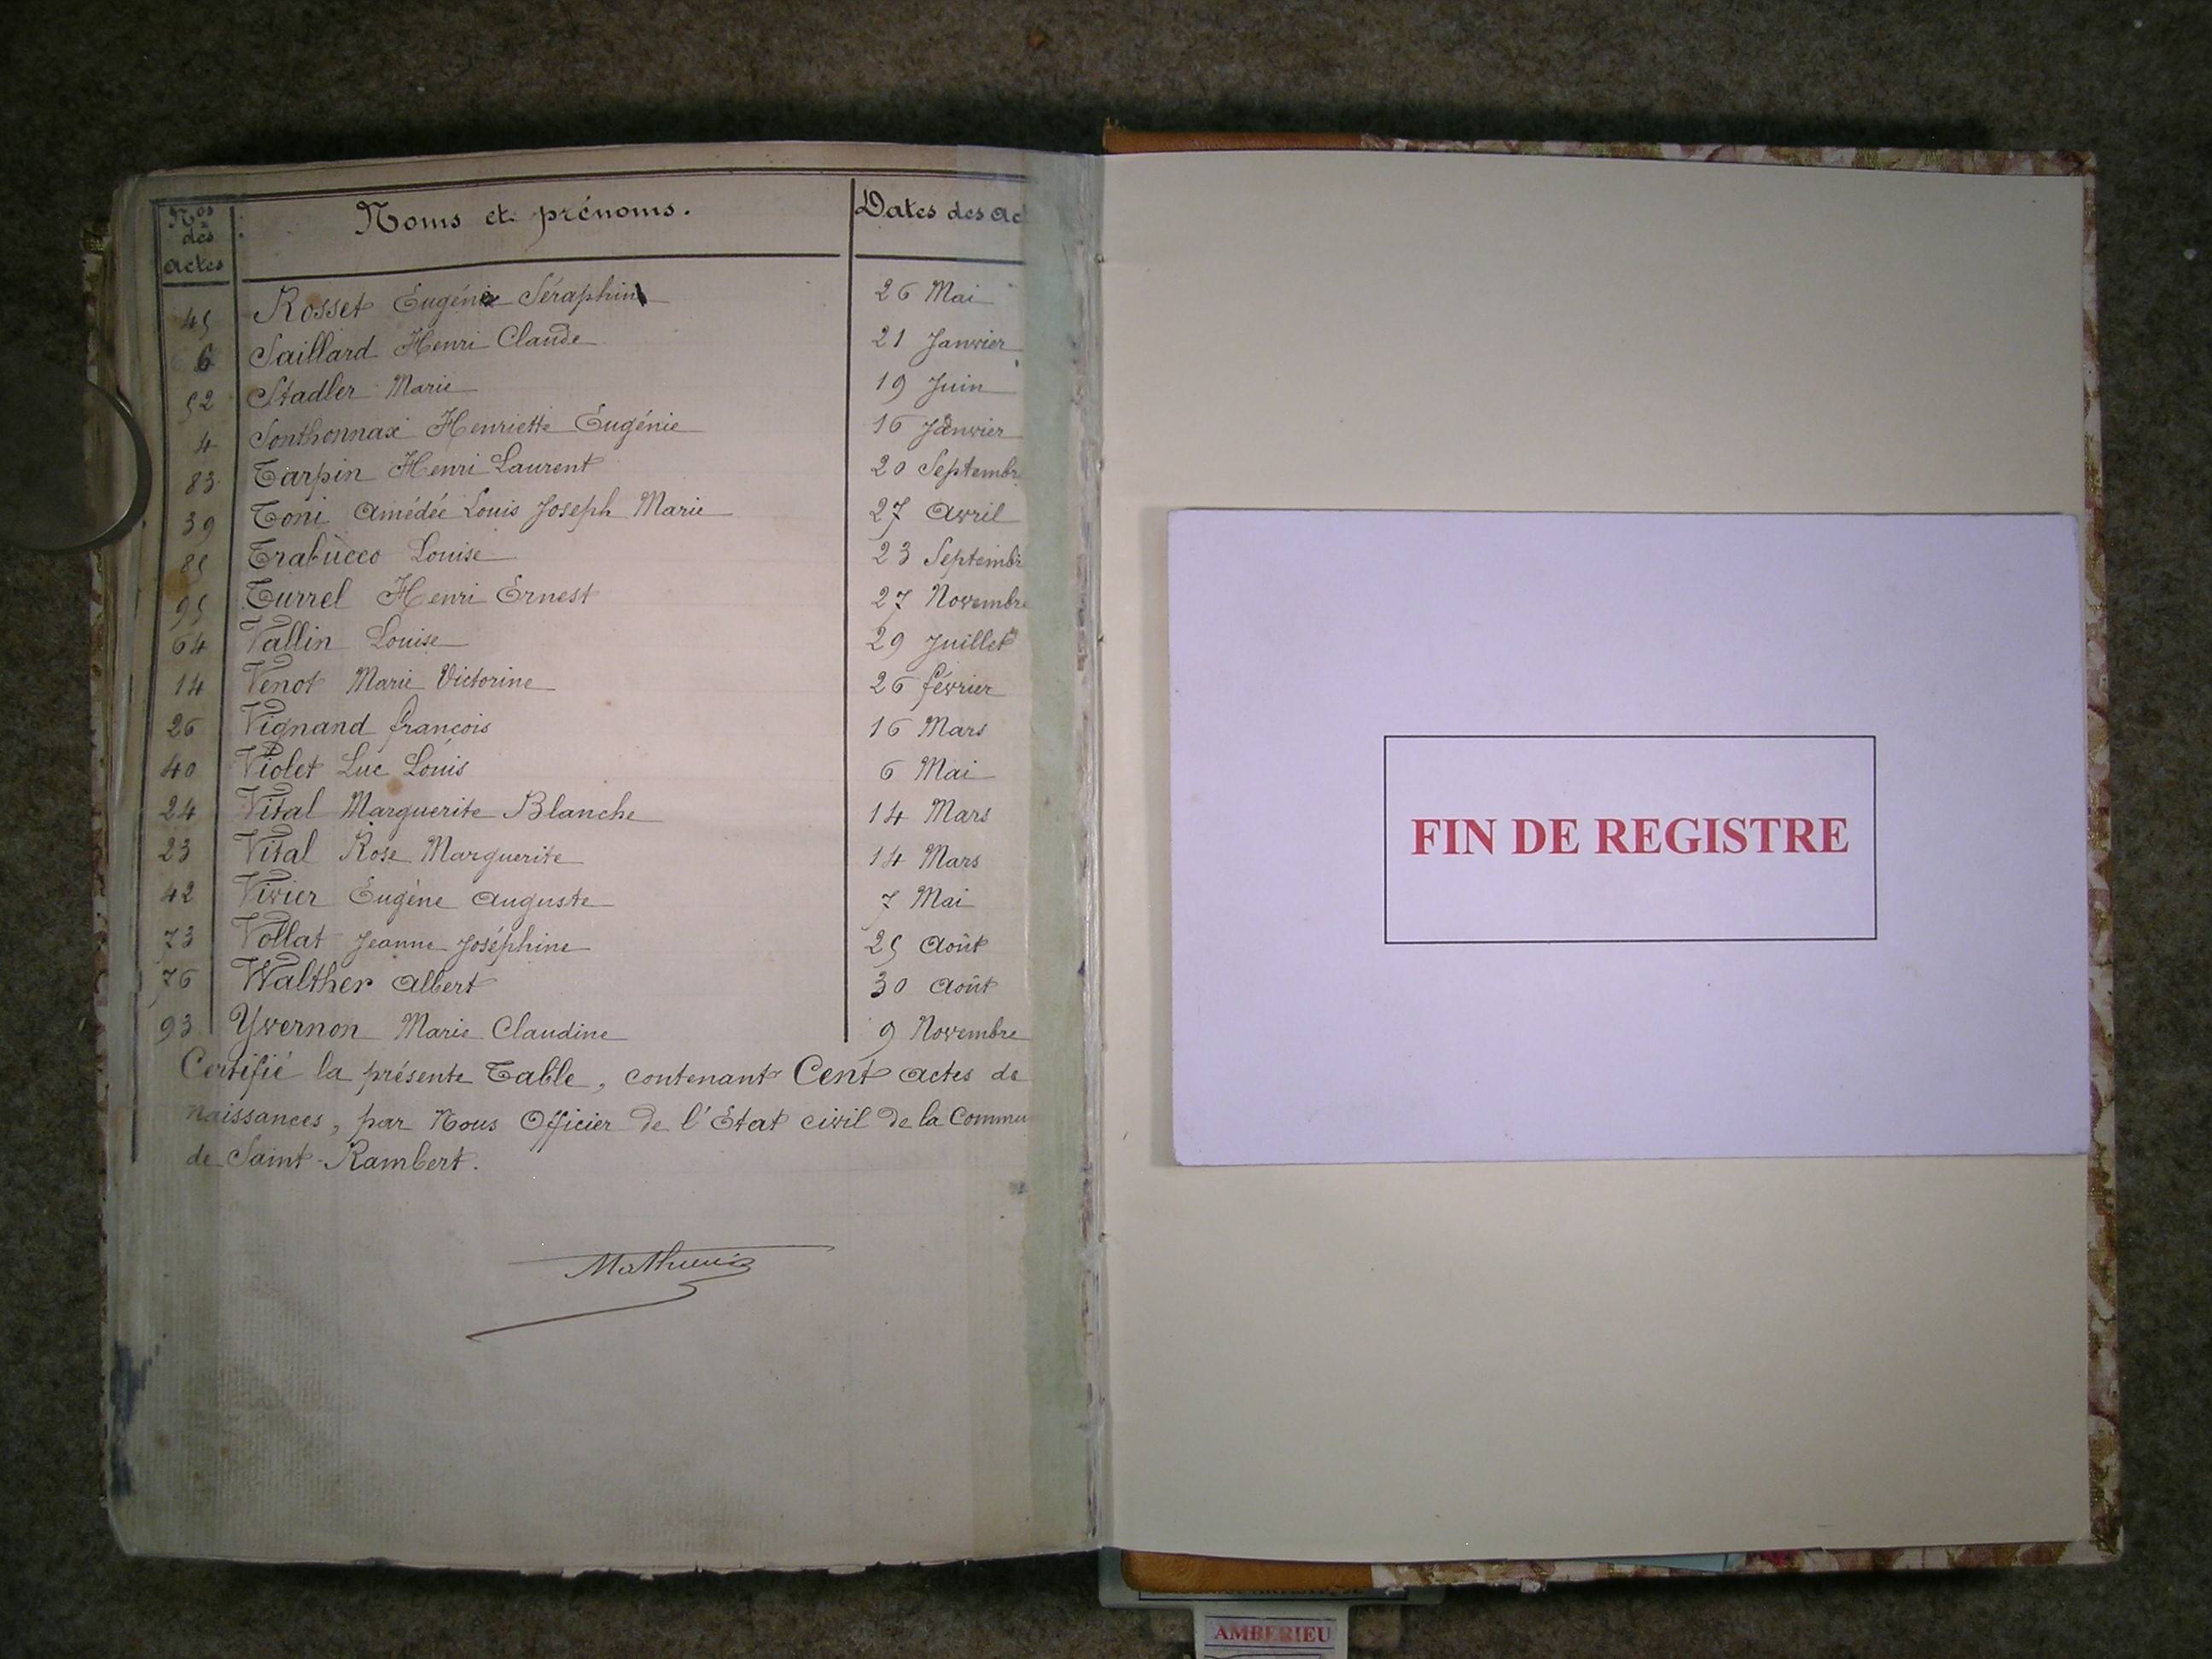 Nos des actes Noms et prénoms. Dates des ac
45 Rosset Eugène Séraphin 26 Mai
6 Saillard Henri Claude 21 Janvier
52 Stadler Marie 19 Juin
4 Sonthonnax Henriette Eugénie 16 Janvier
83 Tarpin Henri Laurent 20 Septembre
39 Toni Amédée Louis Joseph Marie 27 Avril
85 Trabucco Louise 23 Septembr
95 Turrel Henri Ernest 27 Novembre
64 Vallin Louise 29 Juillet
14 Venot Marie Victorine 26 février
26 Vignand françois 16 Mars
40 Violet Luc Louis 6 Mai
24 Vital Marguerite Blanche 14 Mars
23 Vital Rose Marguerite 14 Mars
42 Vivier Eugène Auguste 7 Mai
73 Vollat Jeanne Joséphine 25 Août
76 Walther Albert 30 Août
93 Yvernon Marie Claudine 9 Novembre
Certifié la présente Table, contenant Cent actes de
naissances, par Nous Officier de l'Etat civil de la Commu
de Saint-Rambert.
FIN DE REGISTRE
AMBERIEU